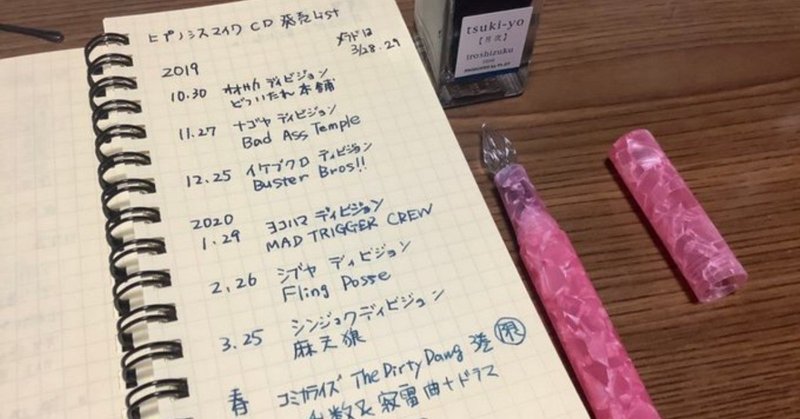 ヒプノシスマイク CD 発売List
メットは
3/28.29
2019
10.30 オオサカ ディビジョン
どついたれ本舗
11.27 ナゴヤ ディビジョン
Bad Ass Temple
12.25 イケブクロ ディビジョン
Buster Bros!!
2020
1.29 ヨコハマ ディビジョン
MAD TRIGGER CREW
2.26 シブヤ ディビジョン
Fling Posse
3.25 シンジュクディビジョン
麻天狼
春 コミカライズ The Dirty Dawg
乱数&寂雷曲+ドラマ
tsuki-yo
【月夜】
iroshizuku